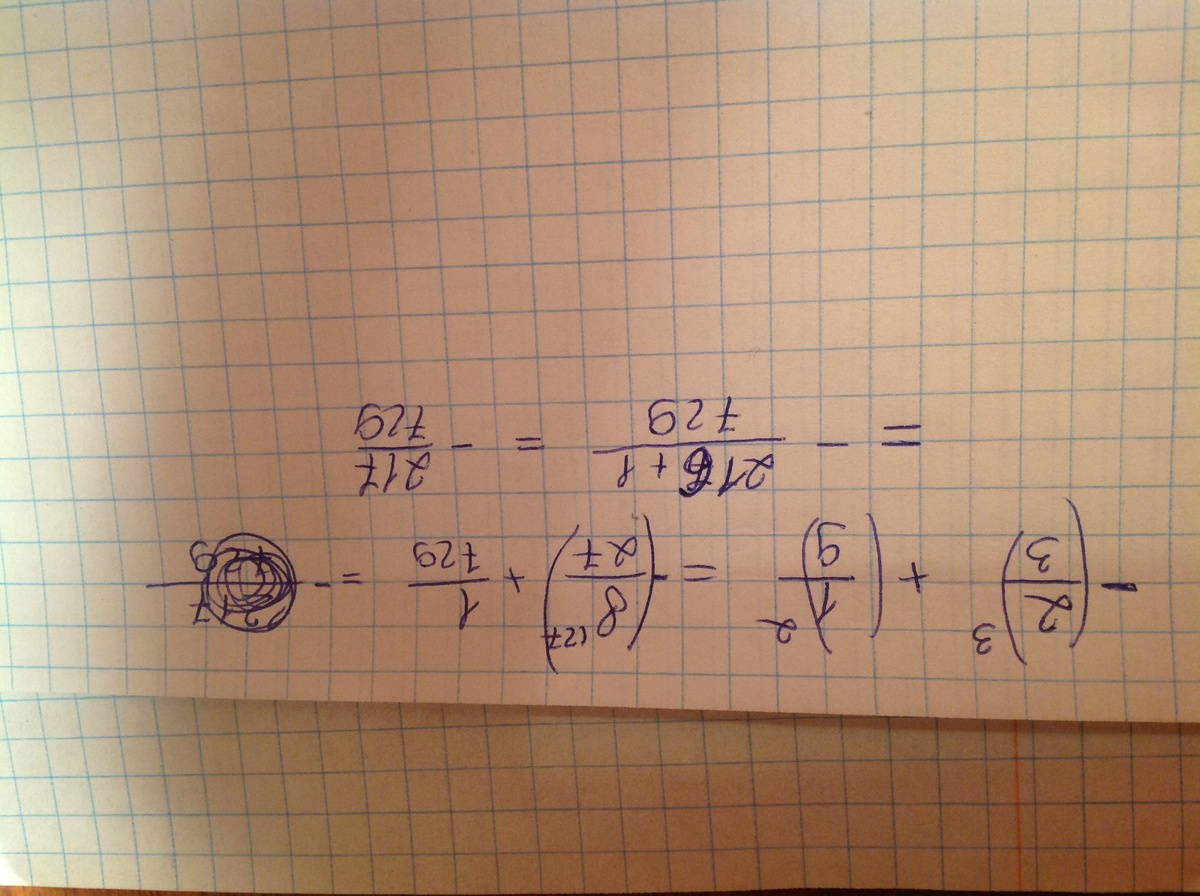 -(2/3)^3 + (1/9)^2 = -(8^(27/27) + 1/729 = -
= - 216+1/729 = - 217/729